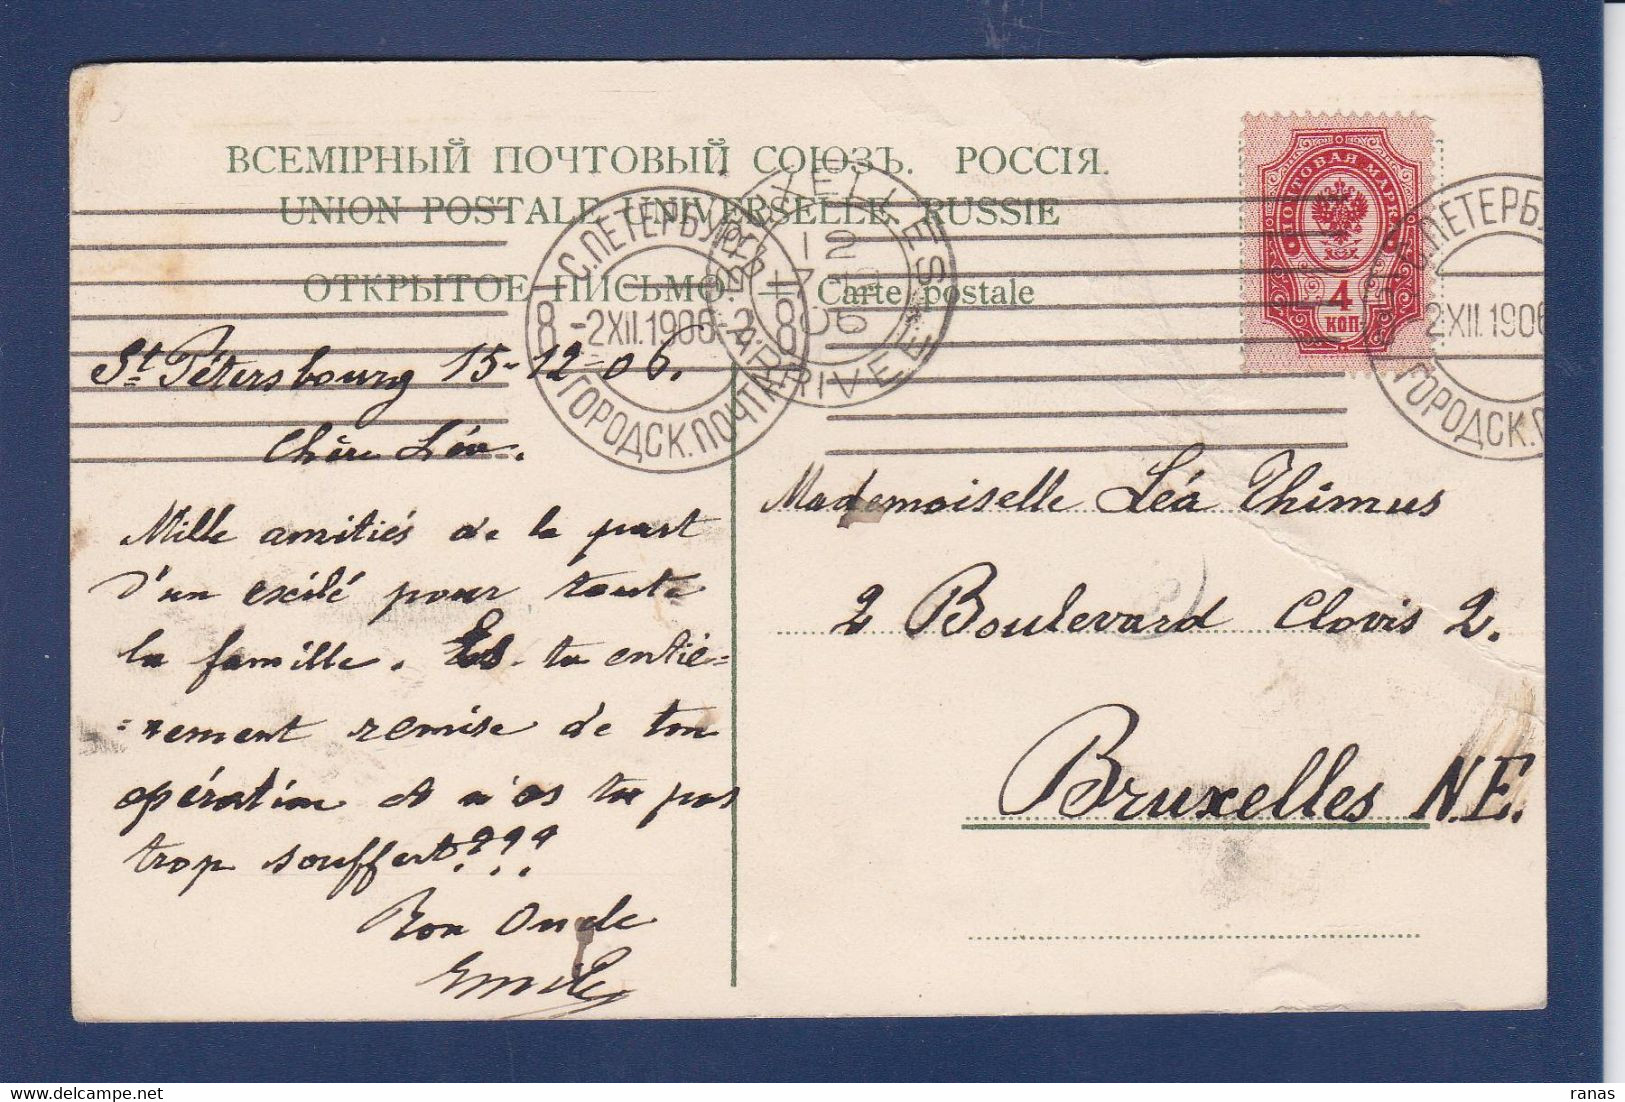 ВСЕМІРНЫЙ ПОЧТОВЫЙ СОЮЗЪ. РОССІЯ.
UNION POSTALE UNIVERSELLE RUSSIE
ОТКРЫТОЕ ПИСЬМО. — Carte postale
ПОЧТОВАЯ МАРКА
4
КОП
С.ПЕТЕРБУРГЪ
8-2XII.1906-2-8
ГОРОДСК.ПОЧТА
ARRIVEE
С.ПЕТЕРБ
2XII.1906
ГОРОДСК.П
St Pétersbourg 15-12-06.
Chère Léa.
Mille amitiés de la part
d'un exilé pour toute
la famille. Es-tu entiè=
=rement remise de ton
opération et n'as tu pas
trop souffert???
Ton Oncle
Emile
Mademoiselle Léa Thimus
2 Boulevard Clovis 2.
Bruxelles N.E.
ranas